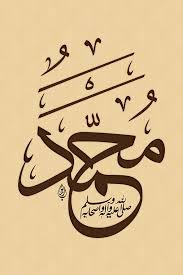 مُحَمَّد
صلى الله عليه وآله واصحابه وسلم